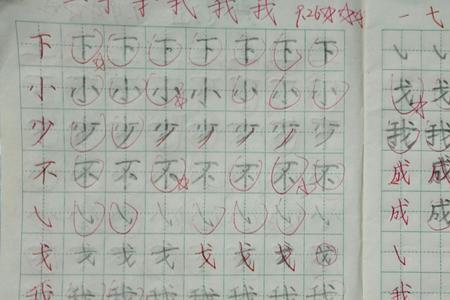 我 我 我 9.26
下 下 下 下 下 下 下 下
小 小 小 小 小 小 小 小
少 少 少 少 少 少 少 少
不 不 不 不 不 不 不 不
戈 戈 戈 戈 戈 戈 戈 戈
我 我 我 我 我 我 我 我
一 七
戈 戈
我 我
成 成
成 成
我